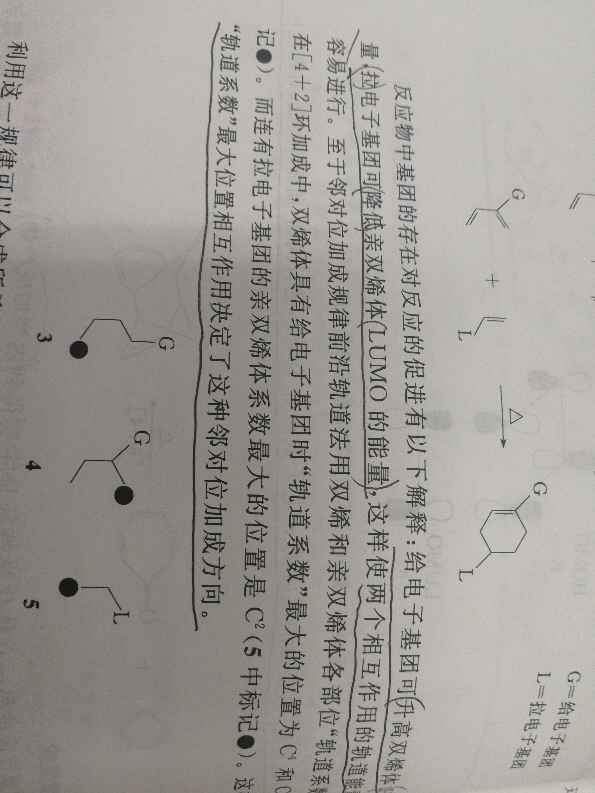 G
+
L
△
G
L
G=给电子基团
L=拉电子基团
反应物中基团的存在对反应的促进有以下解释：给电子基团可升高双烯体
量，拉电子基团可降低亲双烯体LUMO的能量，这样使两个相互作用的轨道能
容易进行。至于邻对位加成规律前沿轨道法用双烯和亲双烯体各部位“轨道系数
在[4+2]环加成中，双烯体具有给电子基团时“轨道系数”最大的位置为C⁴和C
记●)。而连有拉电子基团的亲双烯体系数最大的位置是C²(5中标记●)。这
“轨道系数”最大位置相互作用决定了这种邻对位加成方向。
G
3
G
4
L
5
利用这一规律可以合成